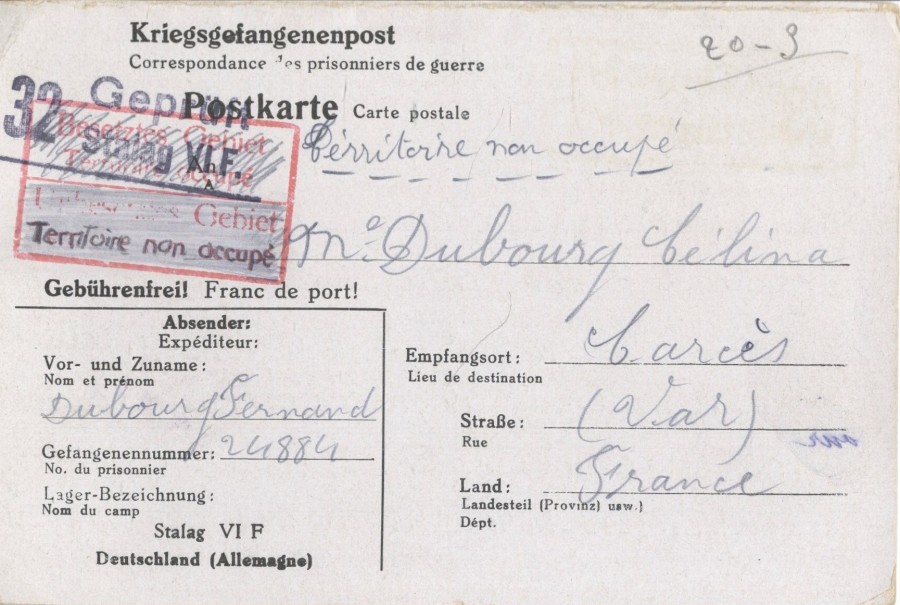 Kriegsgefangenenpost
Correspondance des prisonniers de guerre
20-9
32 Geprüft
Stalag VI F.
Postkarte Carte postale
Besetztes Gebiet
Territoire occupé
Gebiet
Territoire non occupé
Térritoire non occupé
Me Dubourg Célina
Gebührenfrei! Franc de port!
Absender:
Expéditeur:
Vor- und Zuname:
Nom et prénom
Dubourg Fernand
Gefangenennummer: 24884
No. du prisonnier
Lager-Bezeichnung:
Nom du camp
Stalag VI F
Deutschland (Allemagne)
Empfangsort: Carcès
Lieu de destination
Straße: (Var)
Rue
Land: France
Landesteil (Provinz) usw.)
Dépt.